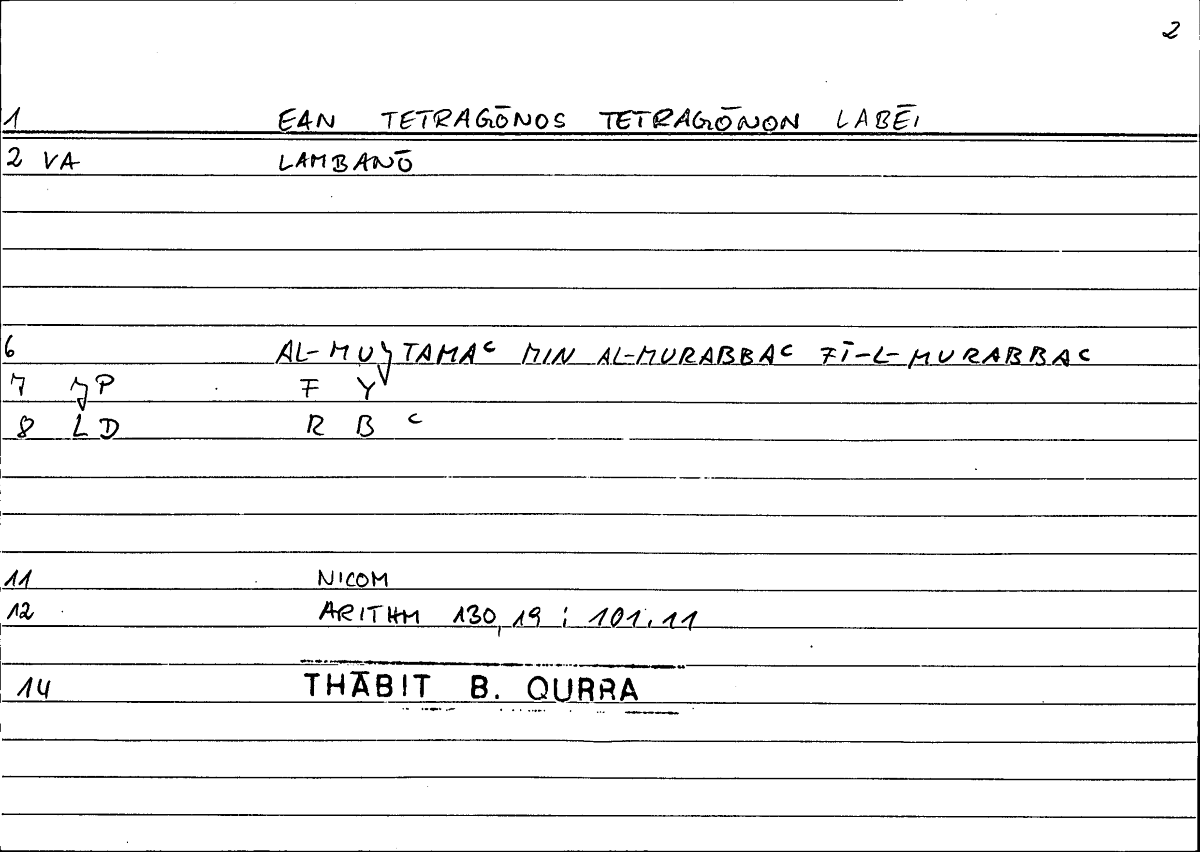 2
1 EAN TETRAGŌNOS TETRAGŌNON LABĒI
2 VA LAMBANŌ
6 AL-MUǦTAMAᶜ MIN AL-MURABBAᶜ FĪ-L-MURABBAᶜ
7 ǦP F Y
8 LD R B ᶜ
11 NICOM
12 ARITHM 130,19 ; 101.11
14 THĀBIT B. QURRA